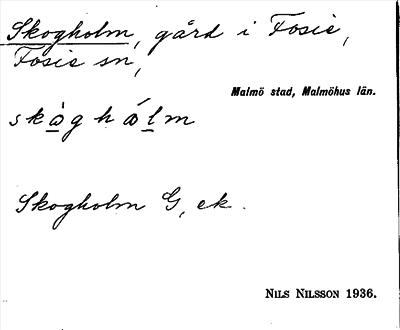 Skogholm, gård i Fosie,
Fosie sn,
Malmö stad, Malmöhus län.
skòghólm
Skogholm G, ek.
NILS NILSSON 1936.